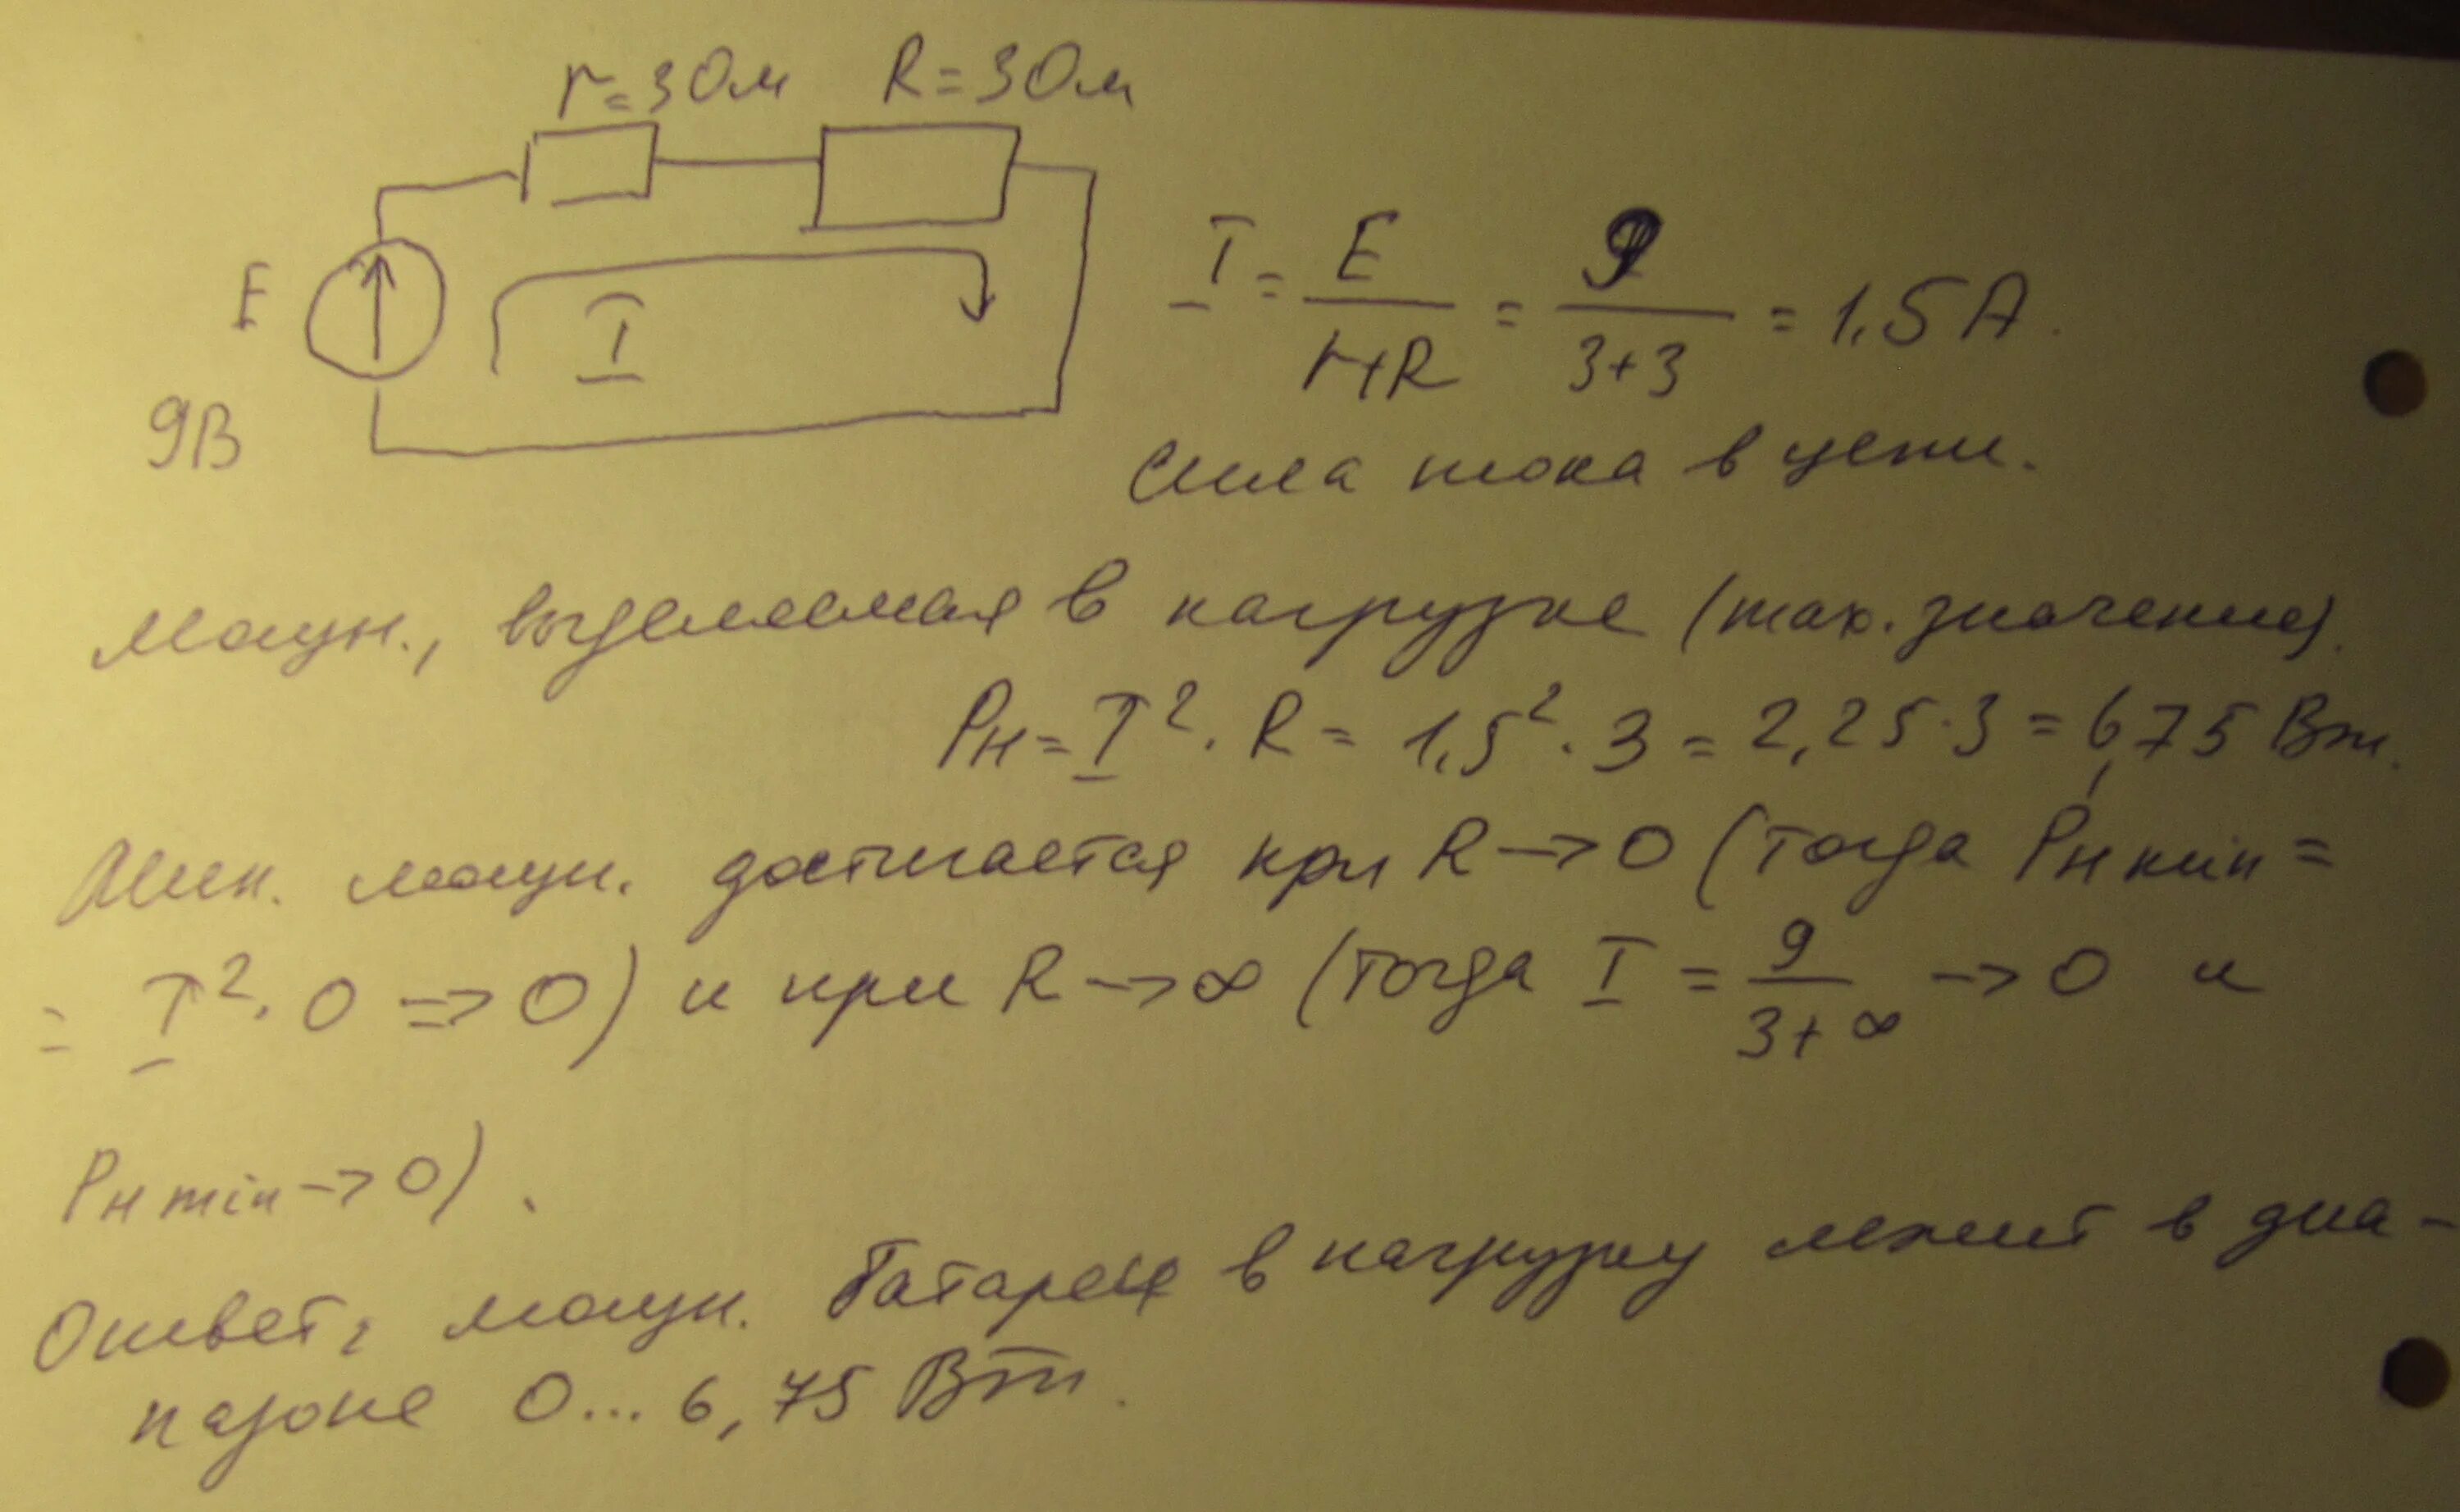 r=3Ом R=3Ом
E
9В
I
I = E/(r+R) = 9/(3+3) = 1,5 А.
Сила тока в цепи.
Мощн., выделяемая в нагрузке (max. значение).
Pн = I². R = 1,5² · 3 = 2,25·3 = 6,75 Вт.
Мин. мощн. достигается при R → 0 (тогда Pн min =
= I². 0 => 0) и при R → ∞ (тогда I = 9/(3+∞) → 0 и
Pн min → 0).
Ответ: мощн. батареи в нагрузку лежит в диа-
пазоне 0... 6,75 Вт.